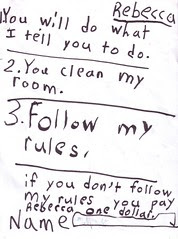 Rebecca
1.You will do what
I tell you to do.
2.You clean my
room.
3.Follow my
rules,
if you don't follow
my rules you pay
Rebecca one dollar.
Name